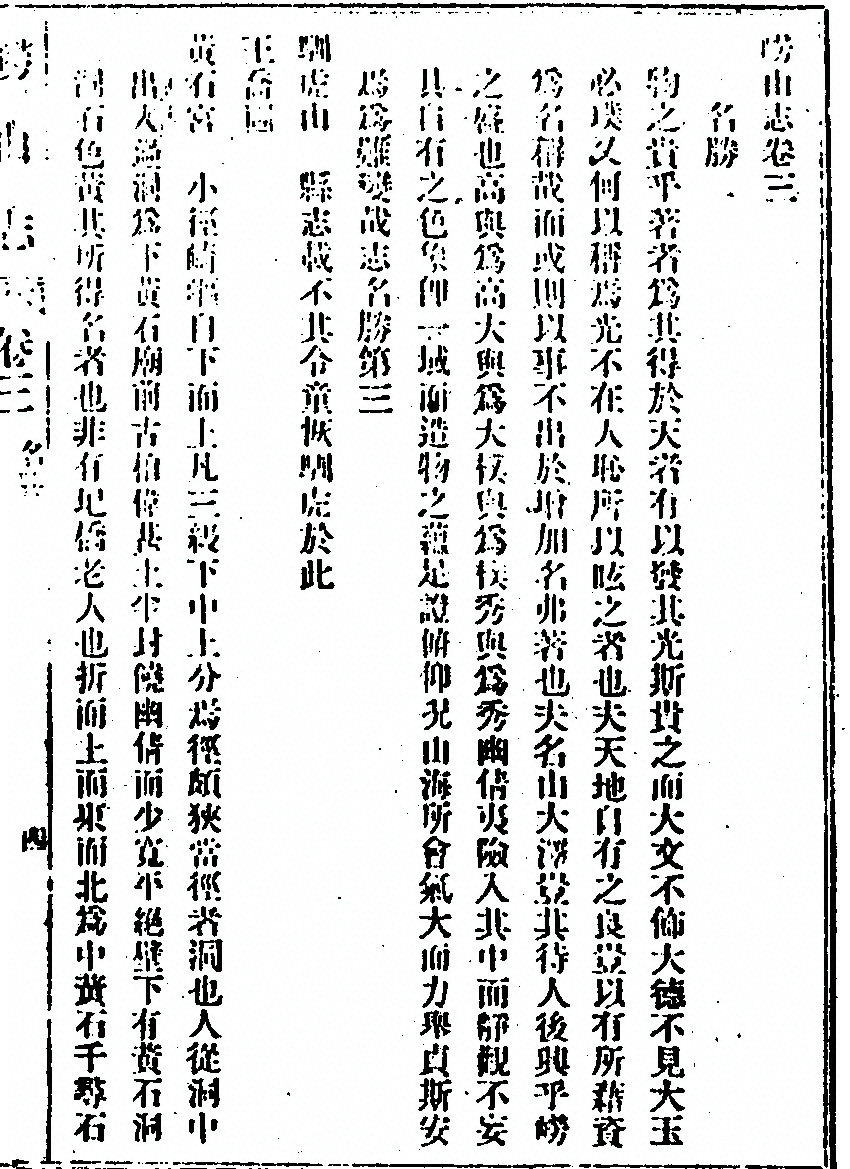 嶗山志卷三
名勝一
物之貴乎著者爲其得於天者有以發其光斯貴之而大文不飾大德不見大玉
必璞又何以稱爲光不在人恥所以眩之者也夫天地自有之良豈以有所藉資
爲名稱哉而或則以事不出於增加名弗著也夫名山大澤豈其待人後興乎嶗
之盛也高與爲高大與爲大樸與爲樸秀與爲秀幽偕夷險入其中而靜觀不妄
具自有之色象卽一域而造物之蘊足證俯仰況山海所會氣大而力舉貞斯安
爲爲難變哉志名勝第三
馴虎山 縣志載不其令童恢馴虎於此
王喬崮
黃石宮 小徑崎嶇自下而上凡三級下中上分爲徑頗狹當徑者洞也人從洞中
出入過洞爲下黃石廟前古柏偉甚土牢封饒幽偕而少寬平絕壁下有黃石洞
洞石色黃其所得名者也非有圯僑老人也折而上而東而北爲中黃石千尋石
嶗山志 卷三 名 四